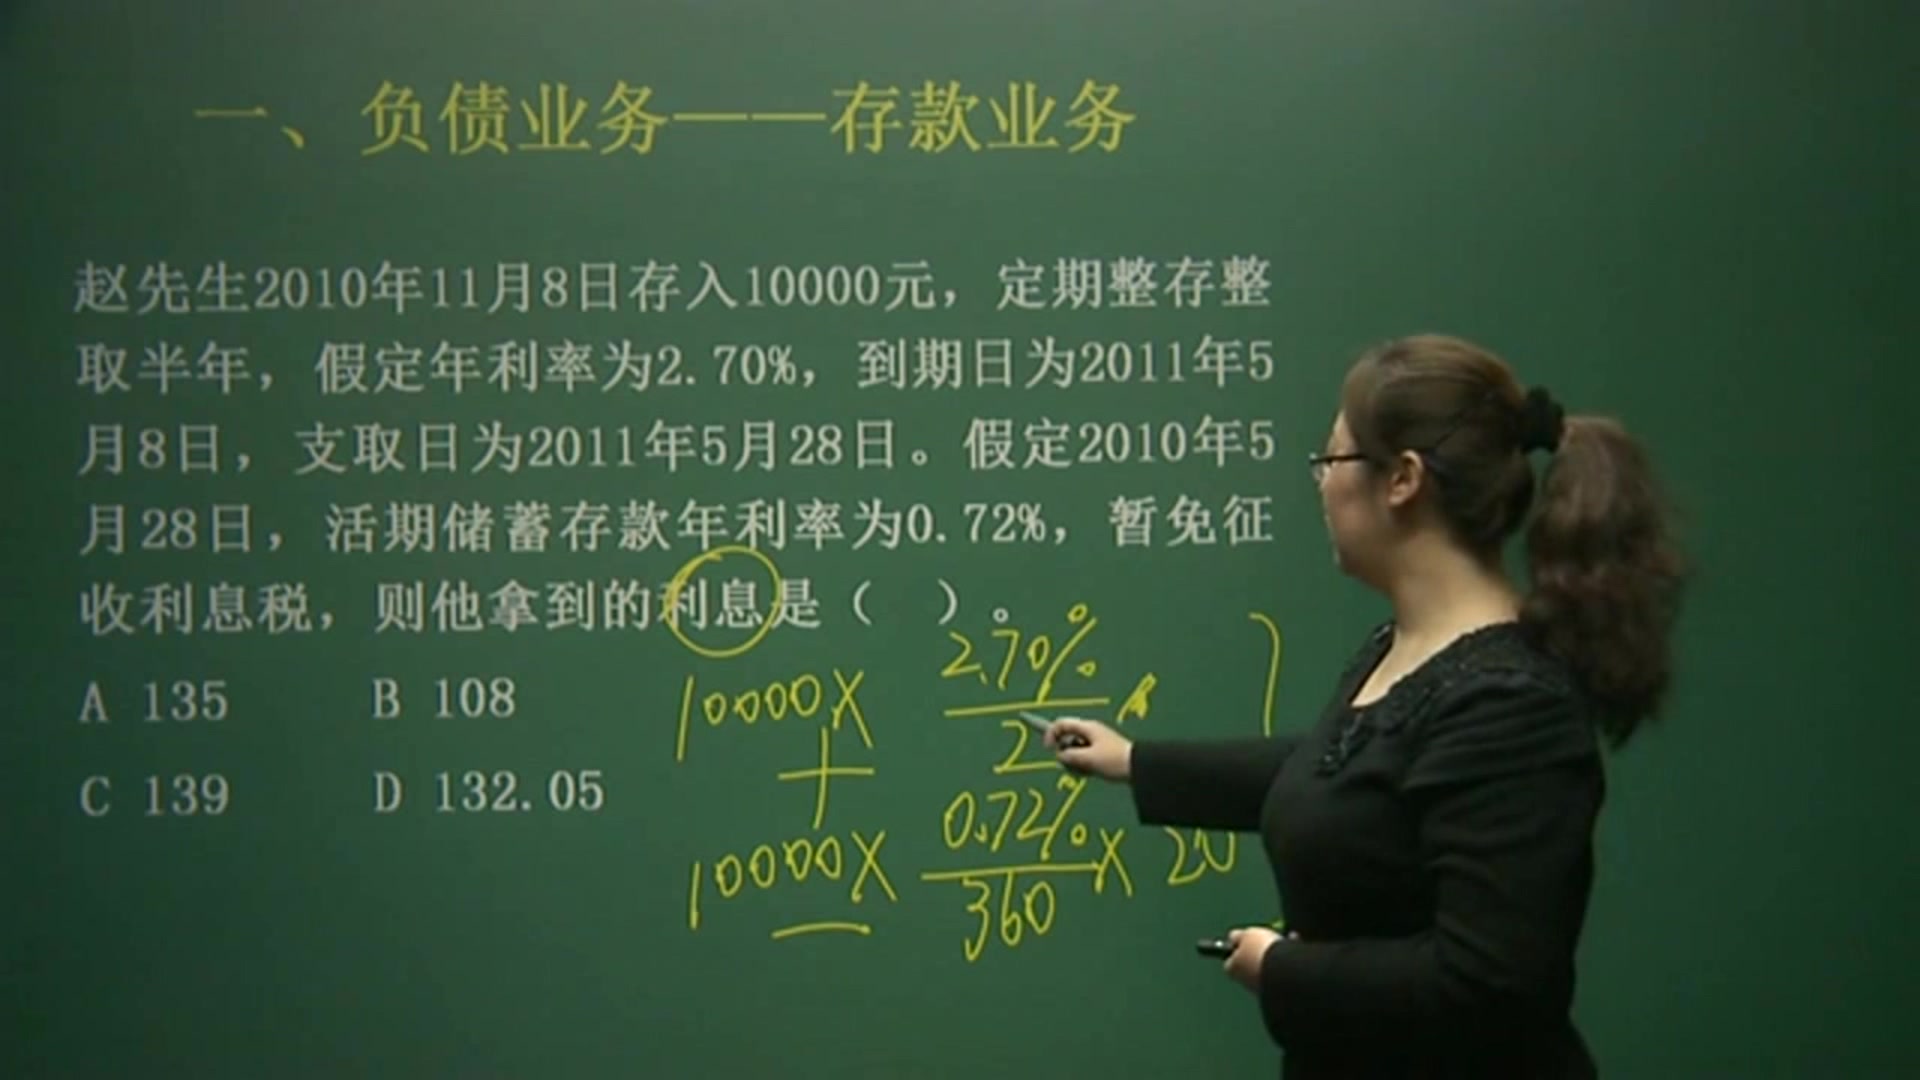 一、负债业务——存款业务
赵先生2010年11月8日存入10000元，定期整存整
取半年，假定年利率为2.70%，到期日为2011年5
月8日，支取日为2011年5月28日。假定2010年5
月28日，活期储蓄存款年利率为0.72%，暂免征
收利息税，则他拿到的利息是（ ）。
A 135 B 108
C 139 D 132.05
2.70%
10000X
2
+
0.72%
10000X X 20
360